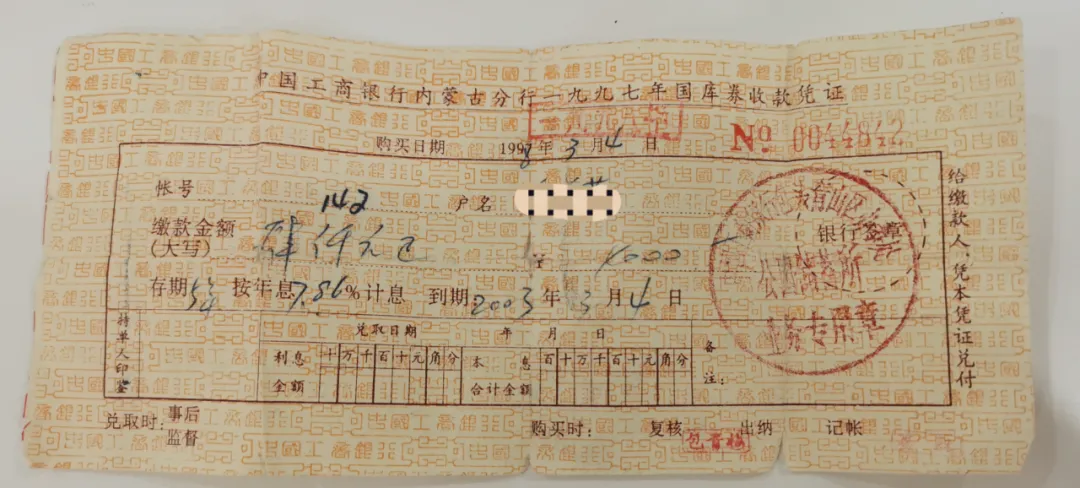 中国工商银行内蒙古分行一九九七年国库券收款凭证
购买日期 1998年3月4日 No 0044842
帐号 142 户名
缴款金额(大写) 肆仟元正 4000
银行签章
存期5年 按年息7.86%计息 到期2003年3月4日
公园路储蓄所
业务专用章
给缴款人,凭本凭证兑付
持单人印鉴
兑取日期 年 月 日
利息金额 十万千百十元角分 本息合计金额 百十万千百十元角分
备注:
兑取时: 事后监督 购买时: 复核 包育梅 出纳 记帐